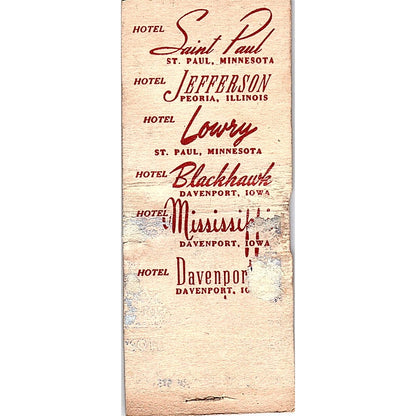 HOTEL Saint Paul
ST. PAUL, MINNESOTA
HOTEL JEFFERSON
PEORIA, ILLINOIS
HOTEL Lowry
ST. PAUL, MINNESOTA
HOTEL Blackhawk
DAVENPORT, IOWA
HOTEL Mississippi
DAVENPORT, IOWA
HOTEL Davenpor
DAVENPORT, IO